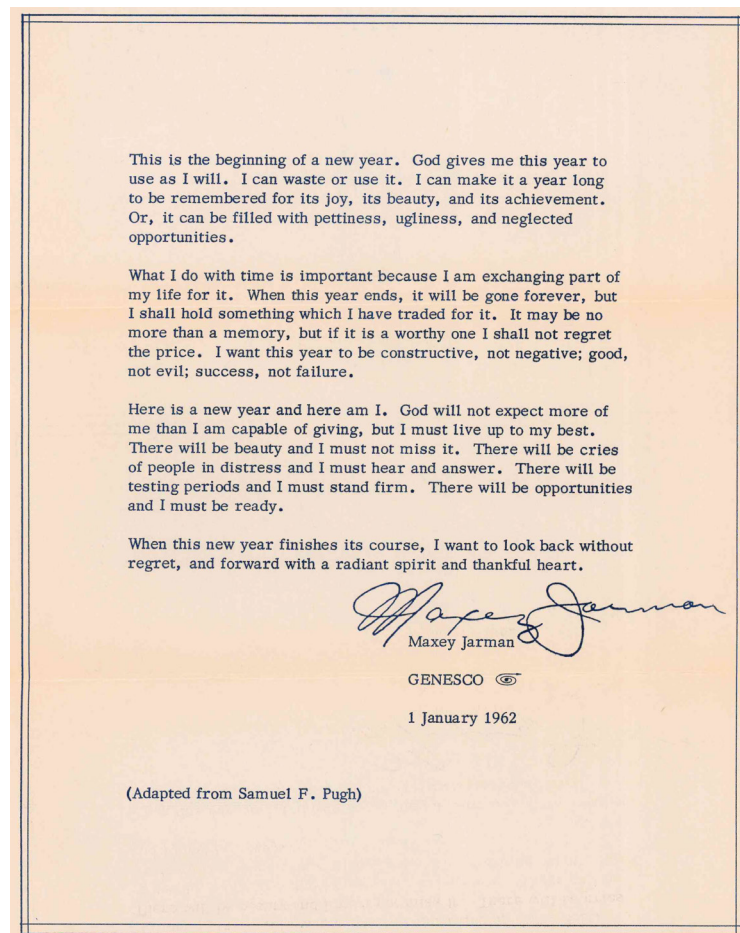 This is the beginning of a new year. God gives me this year to
use as I will. I can waste or use it. I can make it a year long
to be remembered for its joy, its beauty, and its achievement.
Or, it can be filled with pettiness, ugliness, and neglected
opportunities.
What I do with time is important because I am exchanging part of
my life for it. When this year ends, it will be gone forever, but
I shall hold something which I have traded for it. It may be no
more than a memory, but if it is a worthy one I shall not regret
the price. I want this year to be constructive, not negative; good,
not evil; success, not failure.
Here is a new year and here am I. God will not expect more of
me than I am capable of giving, but I must live up to my best.
There will be beauty and I must not miss it. There will be cries
of people in distress and I must hear and answer. There will be
testing periods and I must stand firm. There will be opportunities
and I must be ready.
When this new year finishes its course, I want to look back without
regret, and forward with a radiant spirit and thankful heart.
Maxey Jarman
Maxey Jarman
GENESCO
1 January 1962
(Adapted from Samuel F. Pugh)